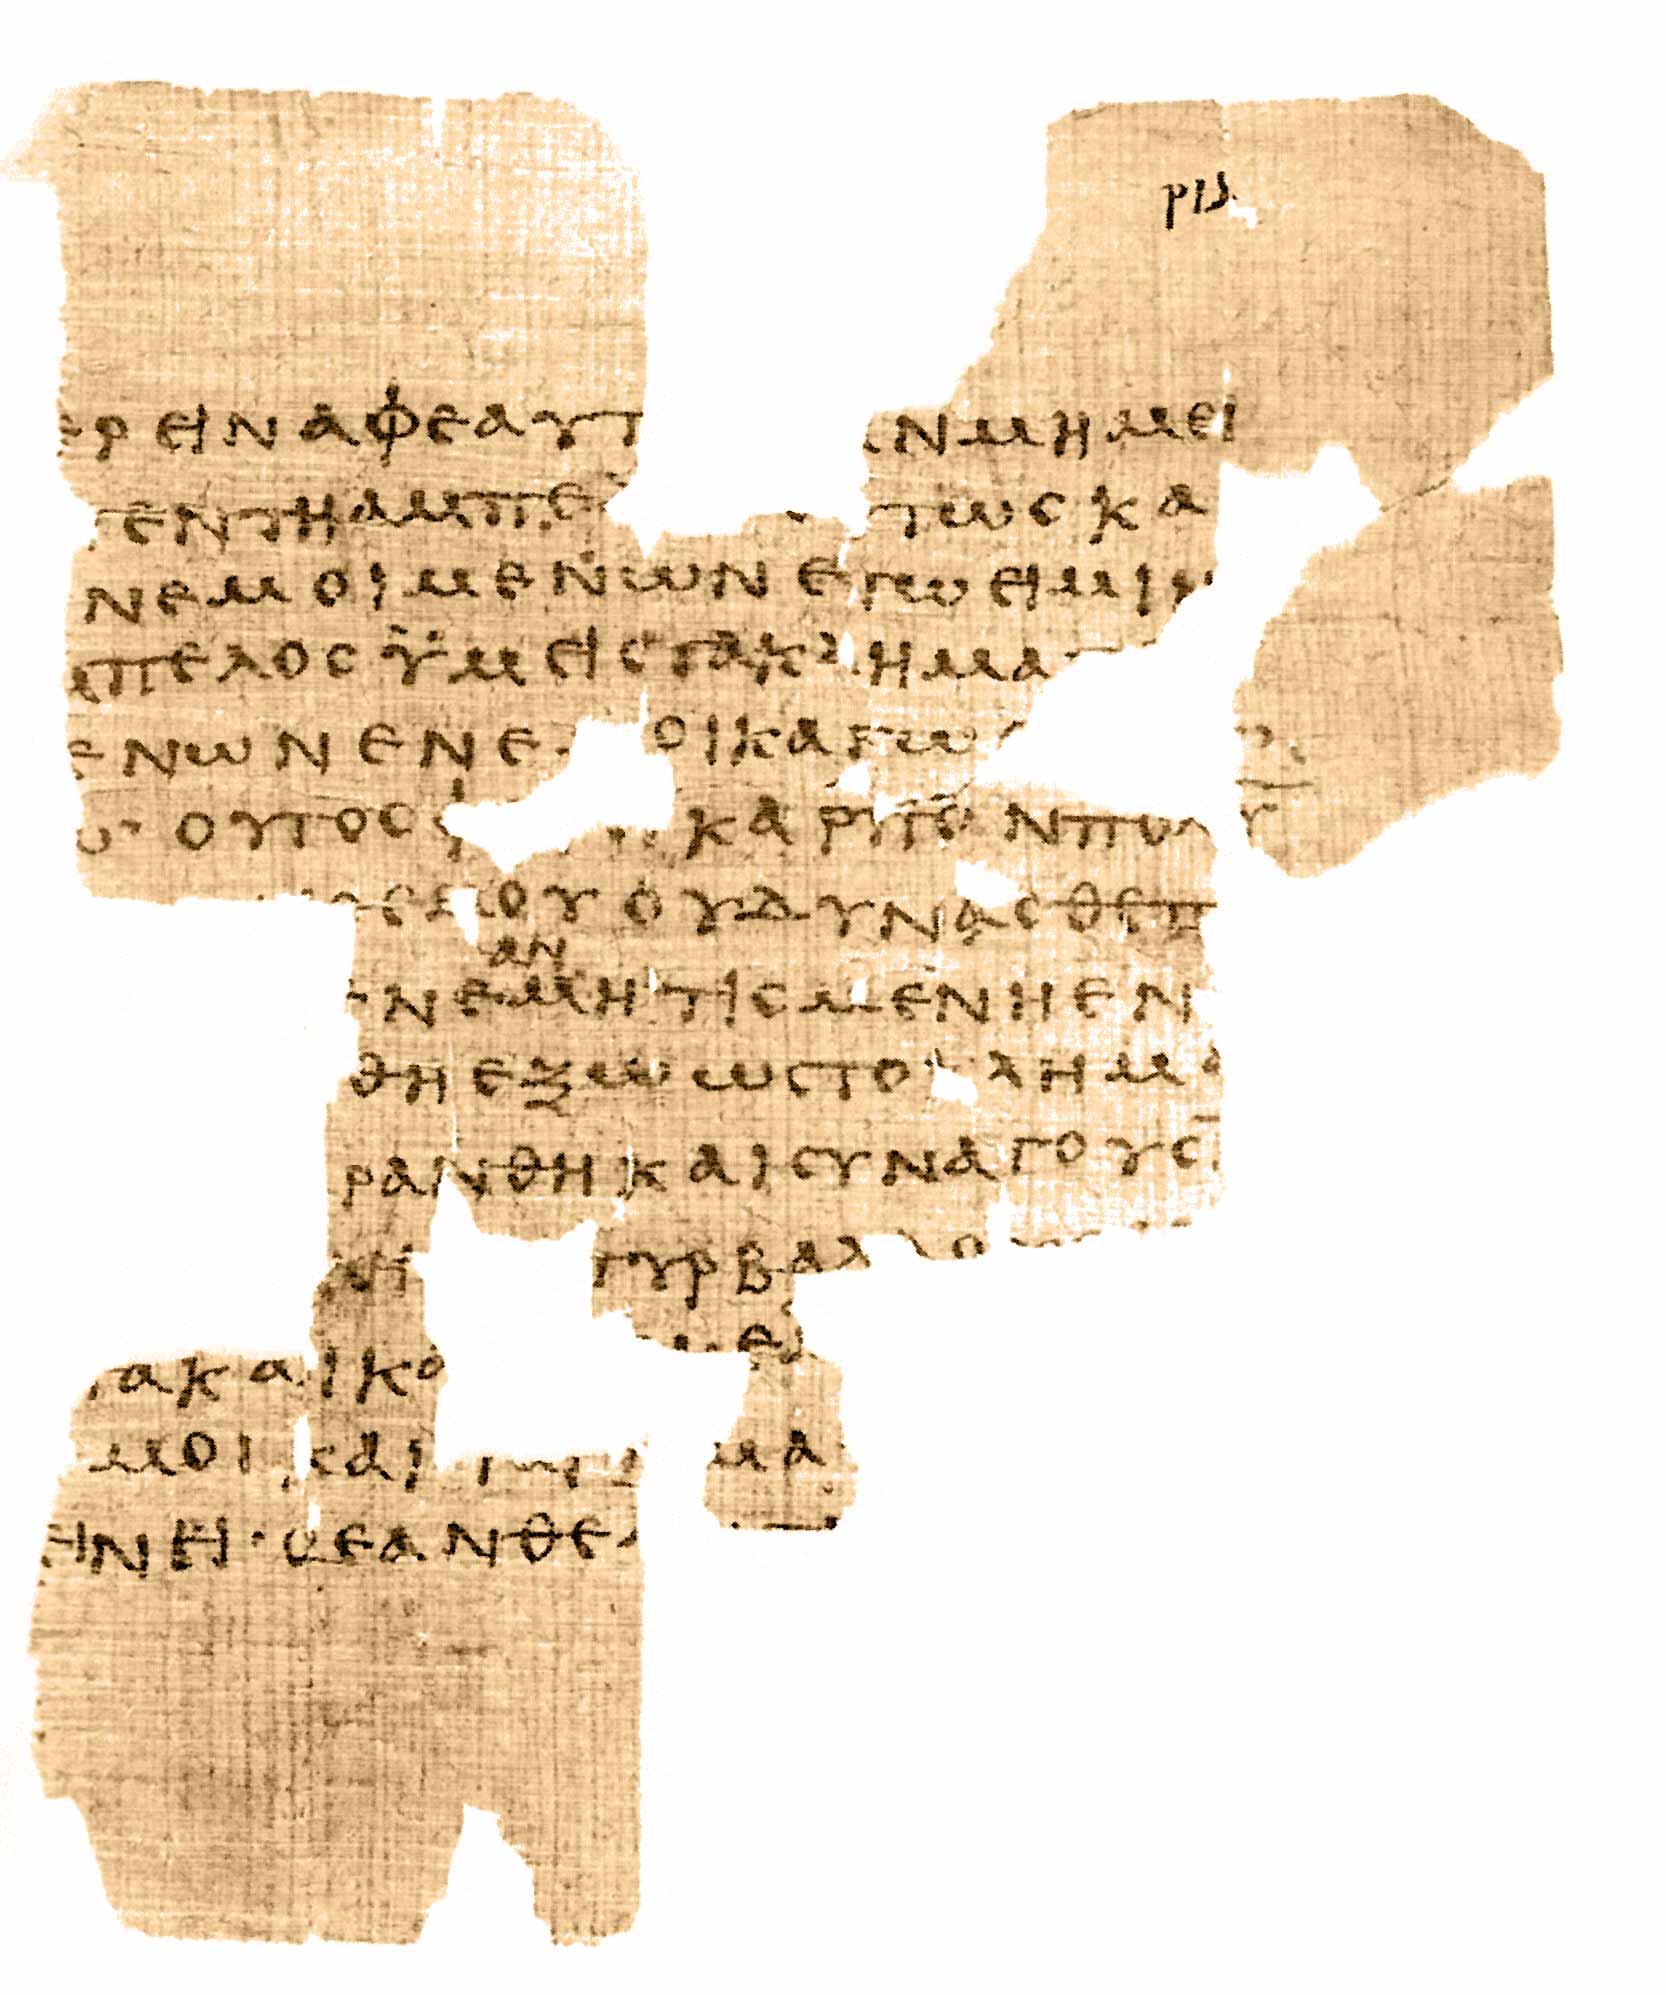 ρις
ΕΡΕΙΝΑΦΕΑΥΤ ΑΝΜΗΜΕΙ
ΕΝΤΗΑΜΠΕ ΤΩϹΚΑ
ΝΕΜΟΙΜΕΝΩΝΕΓΩΕΙΜΙ
ΜΠΕΛΟϹΫΜΕΙϹΤΑΚΛΗΜΑΤ
ΕΝΩΝΕΝΕ ΟΙΚΑΓΩ
Ω· ΟΥΤΟϹΦ ΚΑΡΠΟΝΠΟΛ Υ
ϹΕΜΟΥΟΥΔΥΝΑϹΘΕΠ
ΑΝ
ΝΕΜΗΤΙϹΜΕΝΗΕΝ
ΘΗΕΞΩΩϹΤΟ ΛΗΜΑ
ΡΑΝΘΗΚΑΙϹΥΝΑΓΟΥϹ
ΠΥΡΒΑΛΛΟ
ΤΑΚΑΙΚΑ Ε
ΜΟΙΚΑΙ ΜΑ
ΗΝΗ·ΟΕΑΝΘΕ